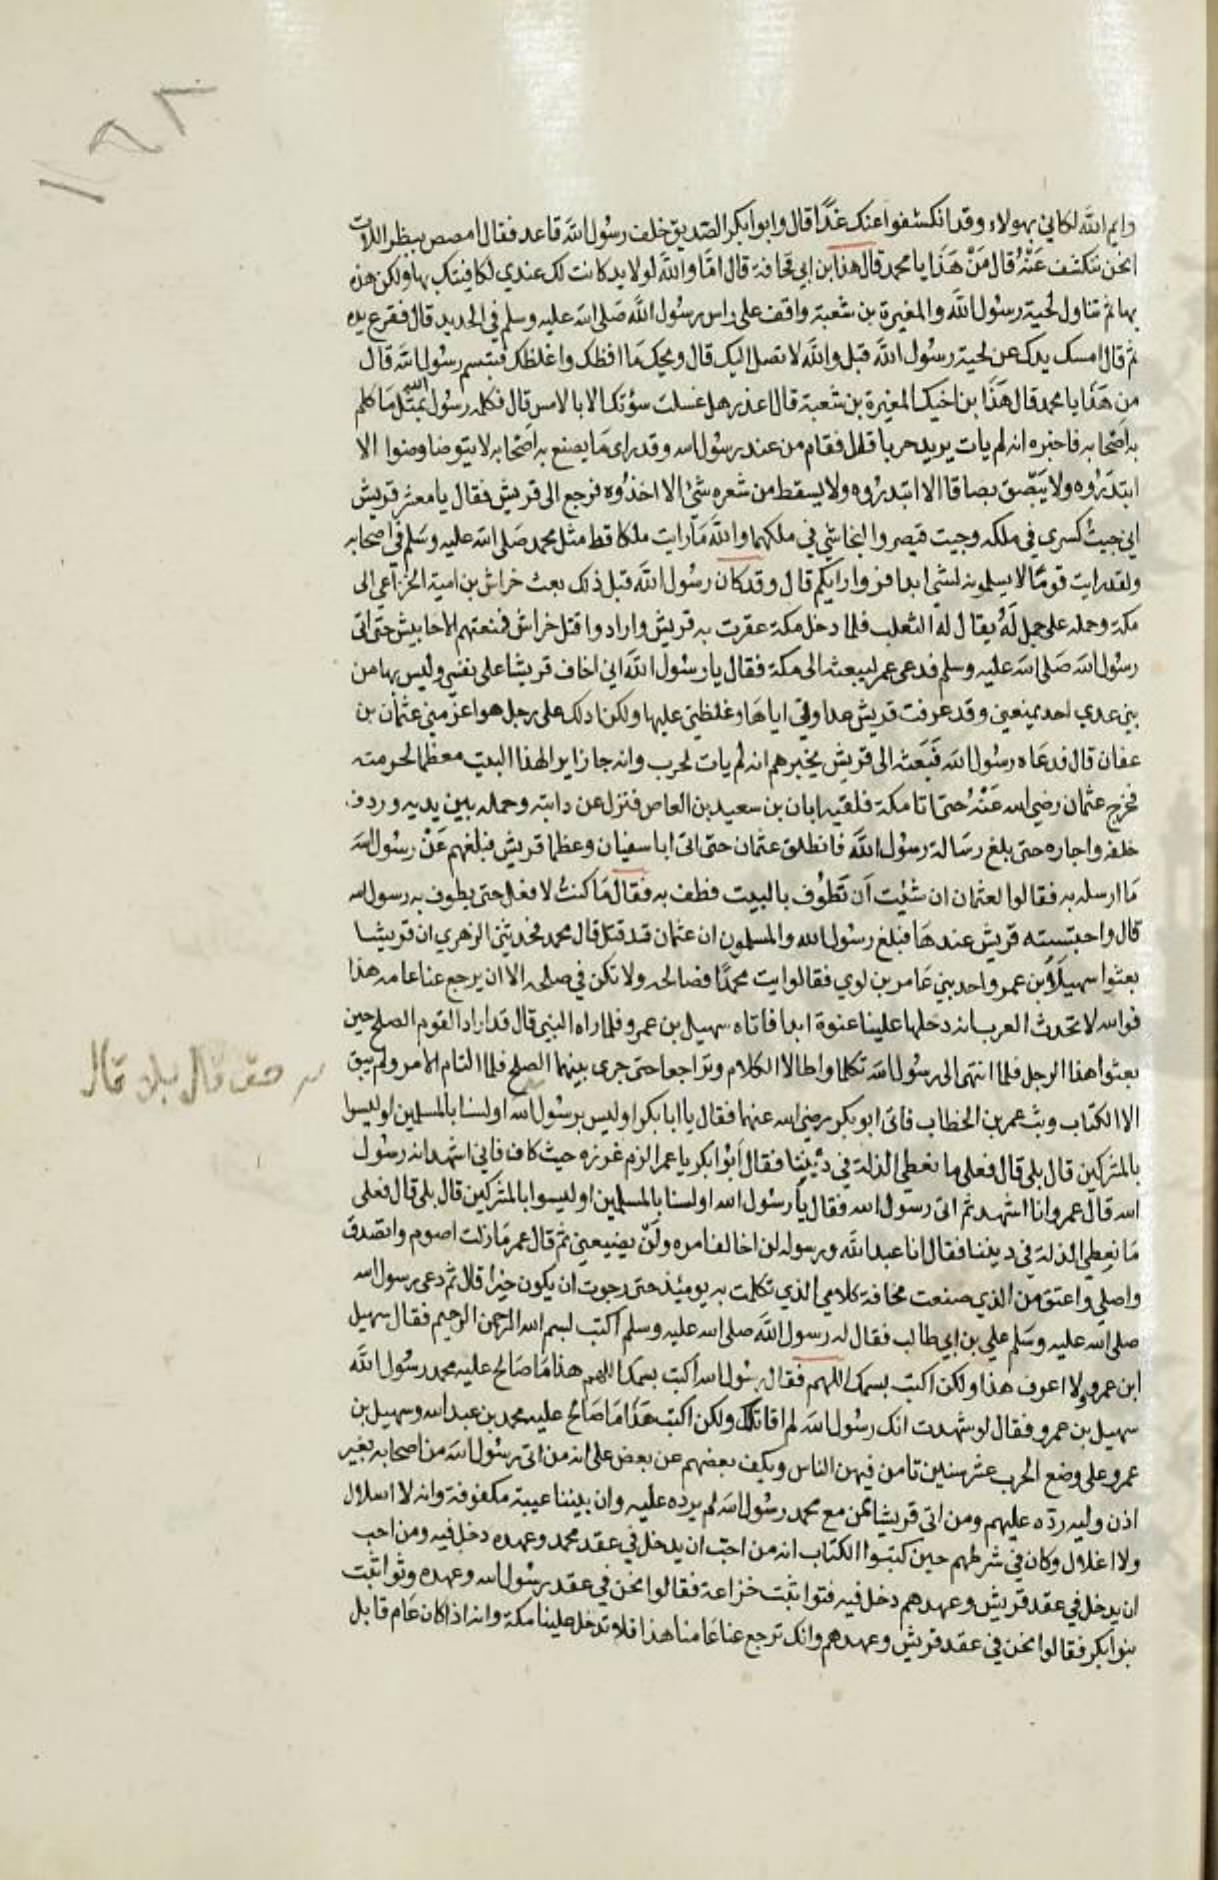 ١١٩٢
وايم الله لكاني بهولاء وقد انكشفوا عنك غدًا قال وابوابكر الصديق خلف رسول الله قاعد فقال امصص ببظر اللات
انحن ننكشف عنه قال من هذا يا محمد قال هذا ابن ابي قحافة قال امّا والله لولا يد كانت لك عندي لكافيتك بها ولكن هذه
بها ثم تناول لحية رسول الله والمغيرة بن شعبة واقف على راس رسول الله صلى الله عليه وسلم في الحديد قال فقرع يده
ثم قال امسك يدك عن لحية رسول الله قبل والله لا تصل اليك قال ويحك ما افظك واغلظك فتبسم رسول الله قال
من هذا يا محمد قال هذا بن اخيك المغيرة بن شعبة قال اغدر هل غسلت سؤتك الا بالامس قال فكلمه رسول الله بمثل ما كلم
به اصحابه فاخبره انه لم يات يريد حربا قال فقام من عند رسول الله وقد راى ما يصنع به اصحابه لا يتوضا وضوا الا
ابتدروه ولا يبصق بصاقا الا ابتدروه ولا يسقط من شعره شئ الا اخذوه فرجع الى قريش فقال يا معشر قريش
اني جيت كسرى في ملكه وجيت قيصر والنجاشي في ملكهما والله ما رايت ملكا قط مثل محمد صلى الله عليه وسلم في اصحابه
ولقد رايت قومًا لا يسلمونه لشي ابدا فروا رايكم قال وقد كان رسول الله قبل ذلك بعث خراش بن امية الخزاعي الى
مكة وحمله على جمل له يقال له الثعلب فلما دخل مكة عقرت به قريش وارادوا قتل خراش فمنعتهم الاحابيش حتى اتى
رسول الله صلى الله عليه وسلم فدعى عمر ليبعثه الى مكة فقال يا رسول الله اني اخاف قريشا على نفسي وليس بها من
بني عدي احد يمنعني وقد عرفت قريش عداوتي اياها وغلظتي عليها ولكن ادلك على رجل هو اعز مني عثمان بن
عفان قال فدعاه رسول الله فبعثه الى قريش يخبرهم انه لم يات لحرب وانه جا زايرا لهذا البيت معظما لحرمته
فخرج عثمان رضي الله عنه حتى اتا مكة فلقيه ابان بن سعيد بن العاص فنزل عن دابته وحمله بين يديه وردف
خلفه واجاره حتى بلغ رسالة رسول الله فانطلق عثمان حتى اتى ابا سفيان وعظما قريش فبلغهم عن رسول الله
ما ارسله به فقالوا لعثمان ان شئت ان تطوف بالبيت فطف به فقال ما كنت لافعل حتى يطوف به رسول الله
قال واحتبسته قريش عندها فبلغ رسول الله والمسلمون ان عثمان قد قتل قال محمد فحدثني الزهري ان قريشا
بعثوا سهيل بن عمرو احد بني عامر بن لوي فقالوا يت محمدًا فصالحه ولا تكن في صلحه الا ان يرجع عنا عامه هذا
فوالله لا تحدث العرب انه دخلها علينا عنوة ابدا فاتاه سهيل بن عمرو فلما راه النبي قال قد اراد القوم الصلح حين
بعثوا هذا الرجل فلما انتهى الى رسول الله تكلما واطالا الكلام وتراجعا حتى جرى بينهما الصلح فلما التام الامر ولم يبق
الا الكتاب وثب عمر بن الخطاب فاتى ابو بكر رضي الله عنهما فقال يا ابا بكر اوليس برسول الله اولسنا بالمسلمين اوليسوا
بالمشركين قال بلى قال فعلى ما نعطي الذلة في ديننا فقال ابوابكر يا عمر الزم غرزه حيث كان فاني اشهد انه رسول
الله قال عمر وانا اشهد ثم اتى رسول الله فقال يا رسول الله اولسنا بالمسلمين اوليسوا بالمشركين قال بلى قال فعلى
ما نعطي الذلة في ديننا فقال انا عبد الله ورسوله لن اخالف امره ولن يضيعني ثم قال عمر ما زلت اصوم واتصدق
واصلي واعتق من الذي صنعت مخافة كلامي الذي تكلمت به يومئذ حتى رجوت ان يكون خيرا قال ثم دعى رسول الله
صلى الله عليه وسلم علي بن ابي طالب فقال له رسول الله صلى الله عليه وسلم اكتب بسم الله الرحمن الرحيم فقال سهيل
ابن عمرو لا اعرف هذا ولكن اكتب بسمك اللهم فقال رسول الله اكتب بسمك اللهم هذا ما صالح عليه محمد رسول الله
سهيل بن عمرو فقال لو شهدت انك رسول الله لم اقاتلك ولكن اكتب هذا ما صالح عليه محمد بن عبد الله وسهيل بن
عمرو على وضع الحرب عشر سنين تامن فيهن الناس ويكف بعضهم عن بعض على انه من اتى رسول الله من اصحابه بغير
اذن وليه رده عليهم ومن اتى قريشا ممن مع محمد رسول الله لم يرده عليه وان بيننا عيبة مكفوفة وانه لا اسلال
ولا اغلال وكان في شرطهم حين كتبوا الكتاب انه من احب ان يدخل في عقد محمد وعهده دخل فيه ومن احب
ان يدخل في عقد قريش وعهدهم دخل فيه فتواثبت خزاعة فقالوا نحن في عقد رسول الله وعهده وتواثبت
بنوابكر فقالوا نحن في عقد قريش وعهدهم وانك ترجع عنا عامنا هذا فلا تدخل علينا مكة وانه اذا كان عام قابل
حق قال بلى قال